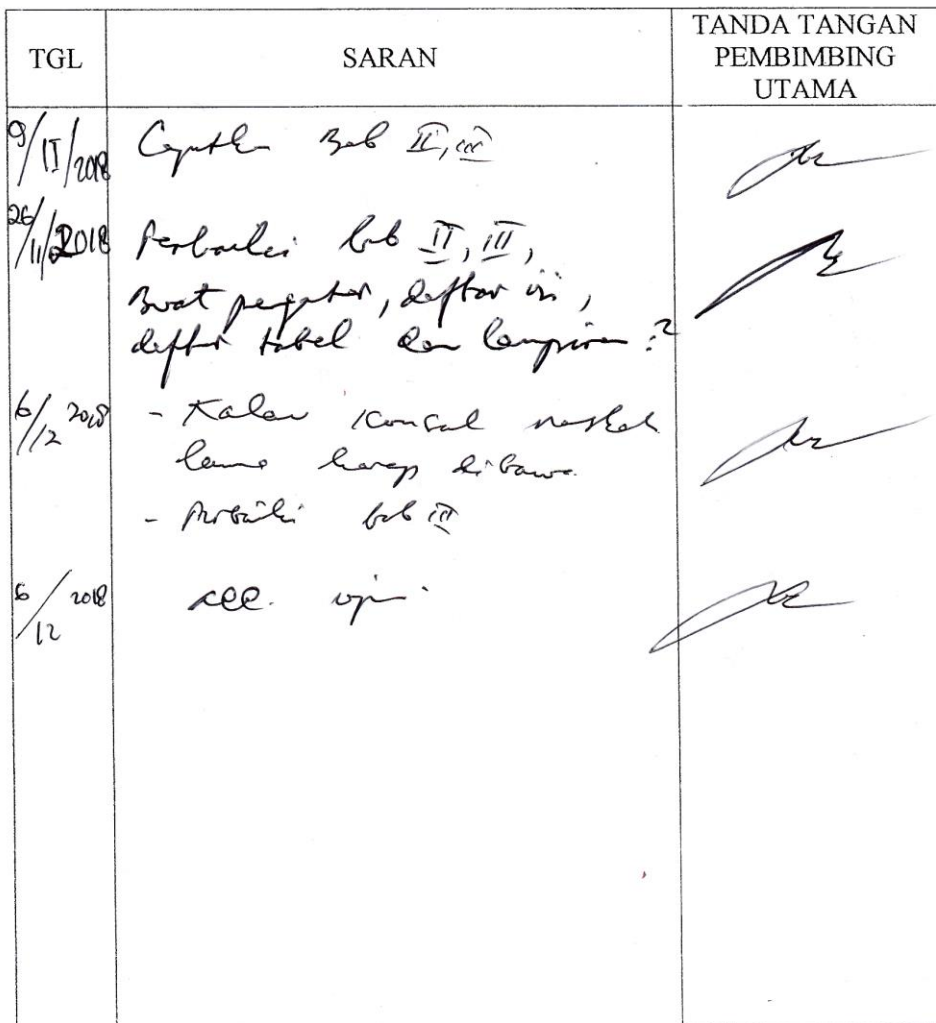 TGL SARAN TANDA TANGAN
PEMBIMBING
UTAMA
9/11/2018 Bab II, III
26/11/2018 Perbaiki bab II, III,
Buat pengantar, daftar isi,
daftar tabel dan lampiran :2
6/12 2018 - Kalau konsul naskah
lama harap dibawa
- Perbaiki bab III
6/12 2018 acc. ujian